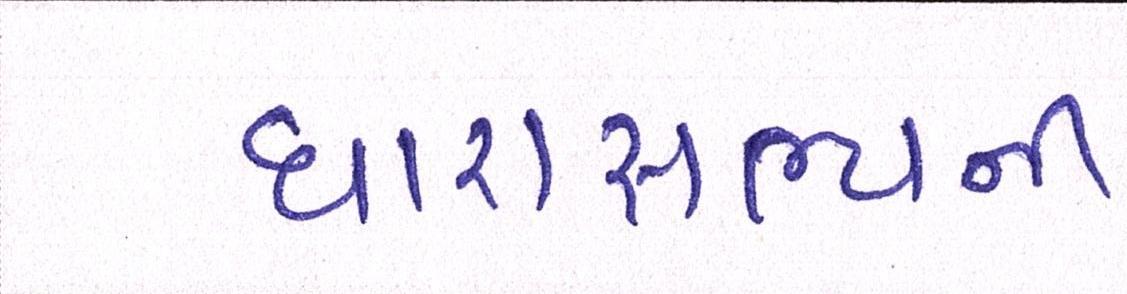 ધારાસભ્યની